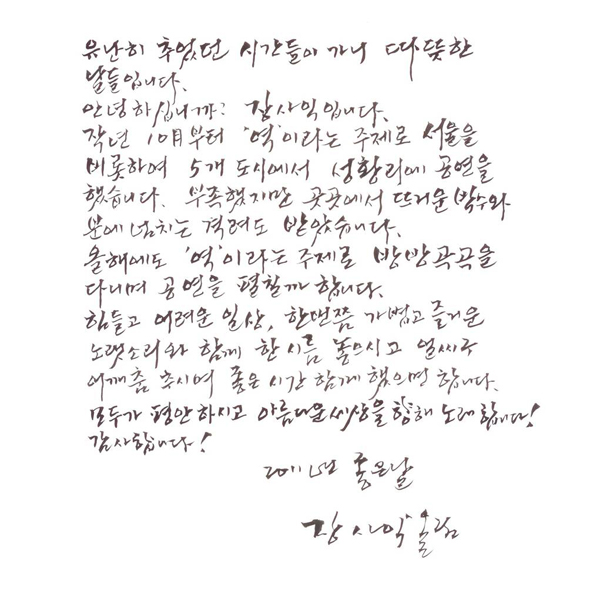 유난히 추웠던 시간들이 가니 따뜻한
날들입니다.
안녕하십니까? 장사익입니다.
작년 10月부터 '역'이라는 주제로 서울을
비롯하여 5개 도시에서 성황리에 공연을
했습니다. 부족했지만 곳곳에서 뜨거운 박수와
분에 넘치는 격려도 받았습니다.
올해에도 '역'이라는 주제로 방방곡곡을
다니며 공연을 펼칠까 합니다.
힘들고 어려운 일상, 한번쯤 가볍고 즐거운
노랫소리와 함께 한시름 놓으시고 얼씨구
어깨춤 추시며 좋은 시간 함께 했으면 합니다.
모두가 평안하시고 아름다운 세상을 향해 노래합니다!
감사합니다!
2011년 좋은날
장사익 올림